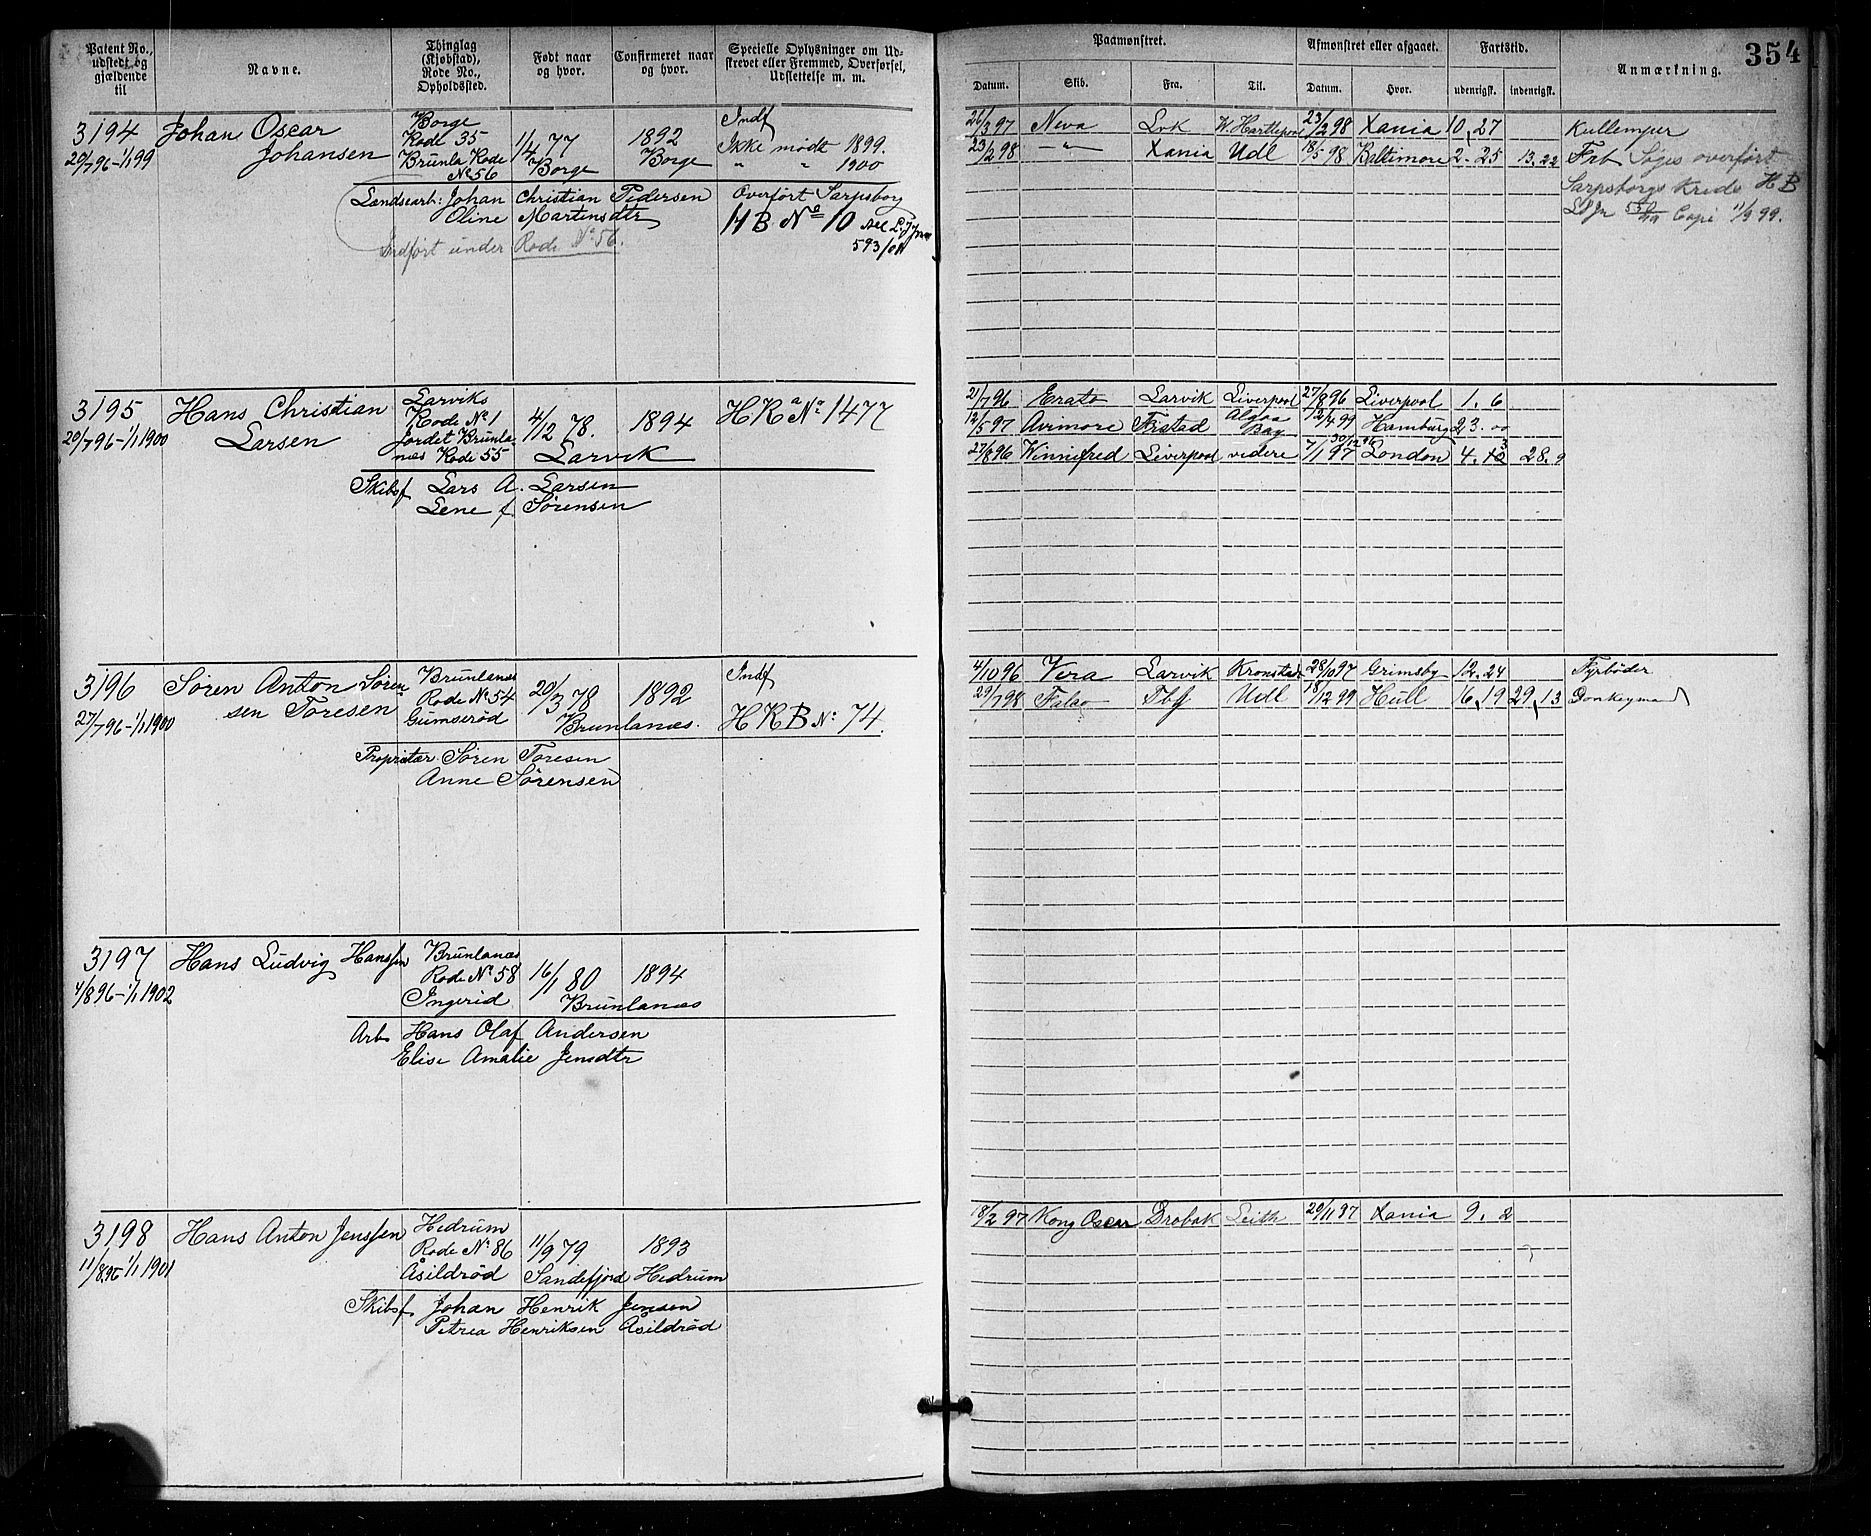 Patent No., udstedt og gjældende til
Navne.
Thinglag (Kjøbstad), Rode No., Opholdssted.
Født naar og hvor.
Confirmeret naar og hvor.
Specielle Oplysninger om Udstrevet eller Fremmed, Overførsel, Udslettelse m. m.
3194
20/7 96-1/1 99
Johan Oscar
Johansen
Borge
Rode 35
Brunla Rode
No 56
1/4 77
Borge
1892
Borge
Indf
Ikke mødt 1899.
" " 1900
Landsearb: Johan Christian Pedersen
Oline Martensdtr
Indført under Rode No 56.
Overført Sarpsborg
H B. No 10
593/01
3195
20/7 96-1/1 1900
Hans Christian
Larsen
Larviks
Rode No 1
Jordet Brunla-
næs Rode 55
4/12 78.
Larvik
1894
H K a No 1477
Skibsf Lars A. Larsen
Lene f. Sørensen
3196
27/7 96-1/1 1900
Søren Anton Søren
sen Toresen
Brunlanæs
Rode No 54
Gumserød
20/3 78
Brunlanæs.
1892
Indf
H K B No 74.
Proprietær Søren Toresen
Anne Sørensen
3197
4/8 96-1/1 1902
Hans Ludvig Hanssen
Brunlanæs
Rode No 58
Ingerid
16/1 80
Brunlanæs
1894
Arb Hans Olaf Andersen
Elise Amalie Jensdtr
3198
11/8 96-1/1 1901
Hans Anton Jenssen
Hedrum
Rode No 86
Åsildrød
11/9 79
Sandefjord
1893
Hedrum
Skibsf Johan Henrik Jensen
Petrea Henriksen Åsildrød
354
Paamønstret.
Afmønstret eller afgaaet.
Fartstid.
Anmærkning.
Datum. Skib. Fra. Til. Datum. Hvor. udenrigsk. indenrigsk.
26/3 97 Neva Lvk W. Hartlepool 23/2 98 Xania 10, 27 Kullemper
23/2 98 -"- Xania Udl 18/5 98 Baltimore 2-25 13.22 Frb Søges overført
Sarpsborgs Kreds H B
Copi 11/9 99.
21/7 96 Erato Larvik Liverpool 27/8 96 Liverpool 1. 6
12/5 97 Avimore Frstad Algoa Bay 12/4 99 Hamburg 23. 00
27/8 96 Winnifred Liverpool videre 7/1 97 London 4. 28. 9
4/10 96 Vera Larvik Kronstadt 28/10 97 Grimsby 12. 24 Fyrbøder
29/7 98 Falao Tbg Udl 18/12 99 Hull 16, 19 29, 13 Donkeymand
18/2 97 Kong Oscar Drobak Leith 20/11 97 Xania 9. 2